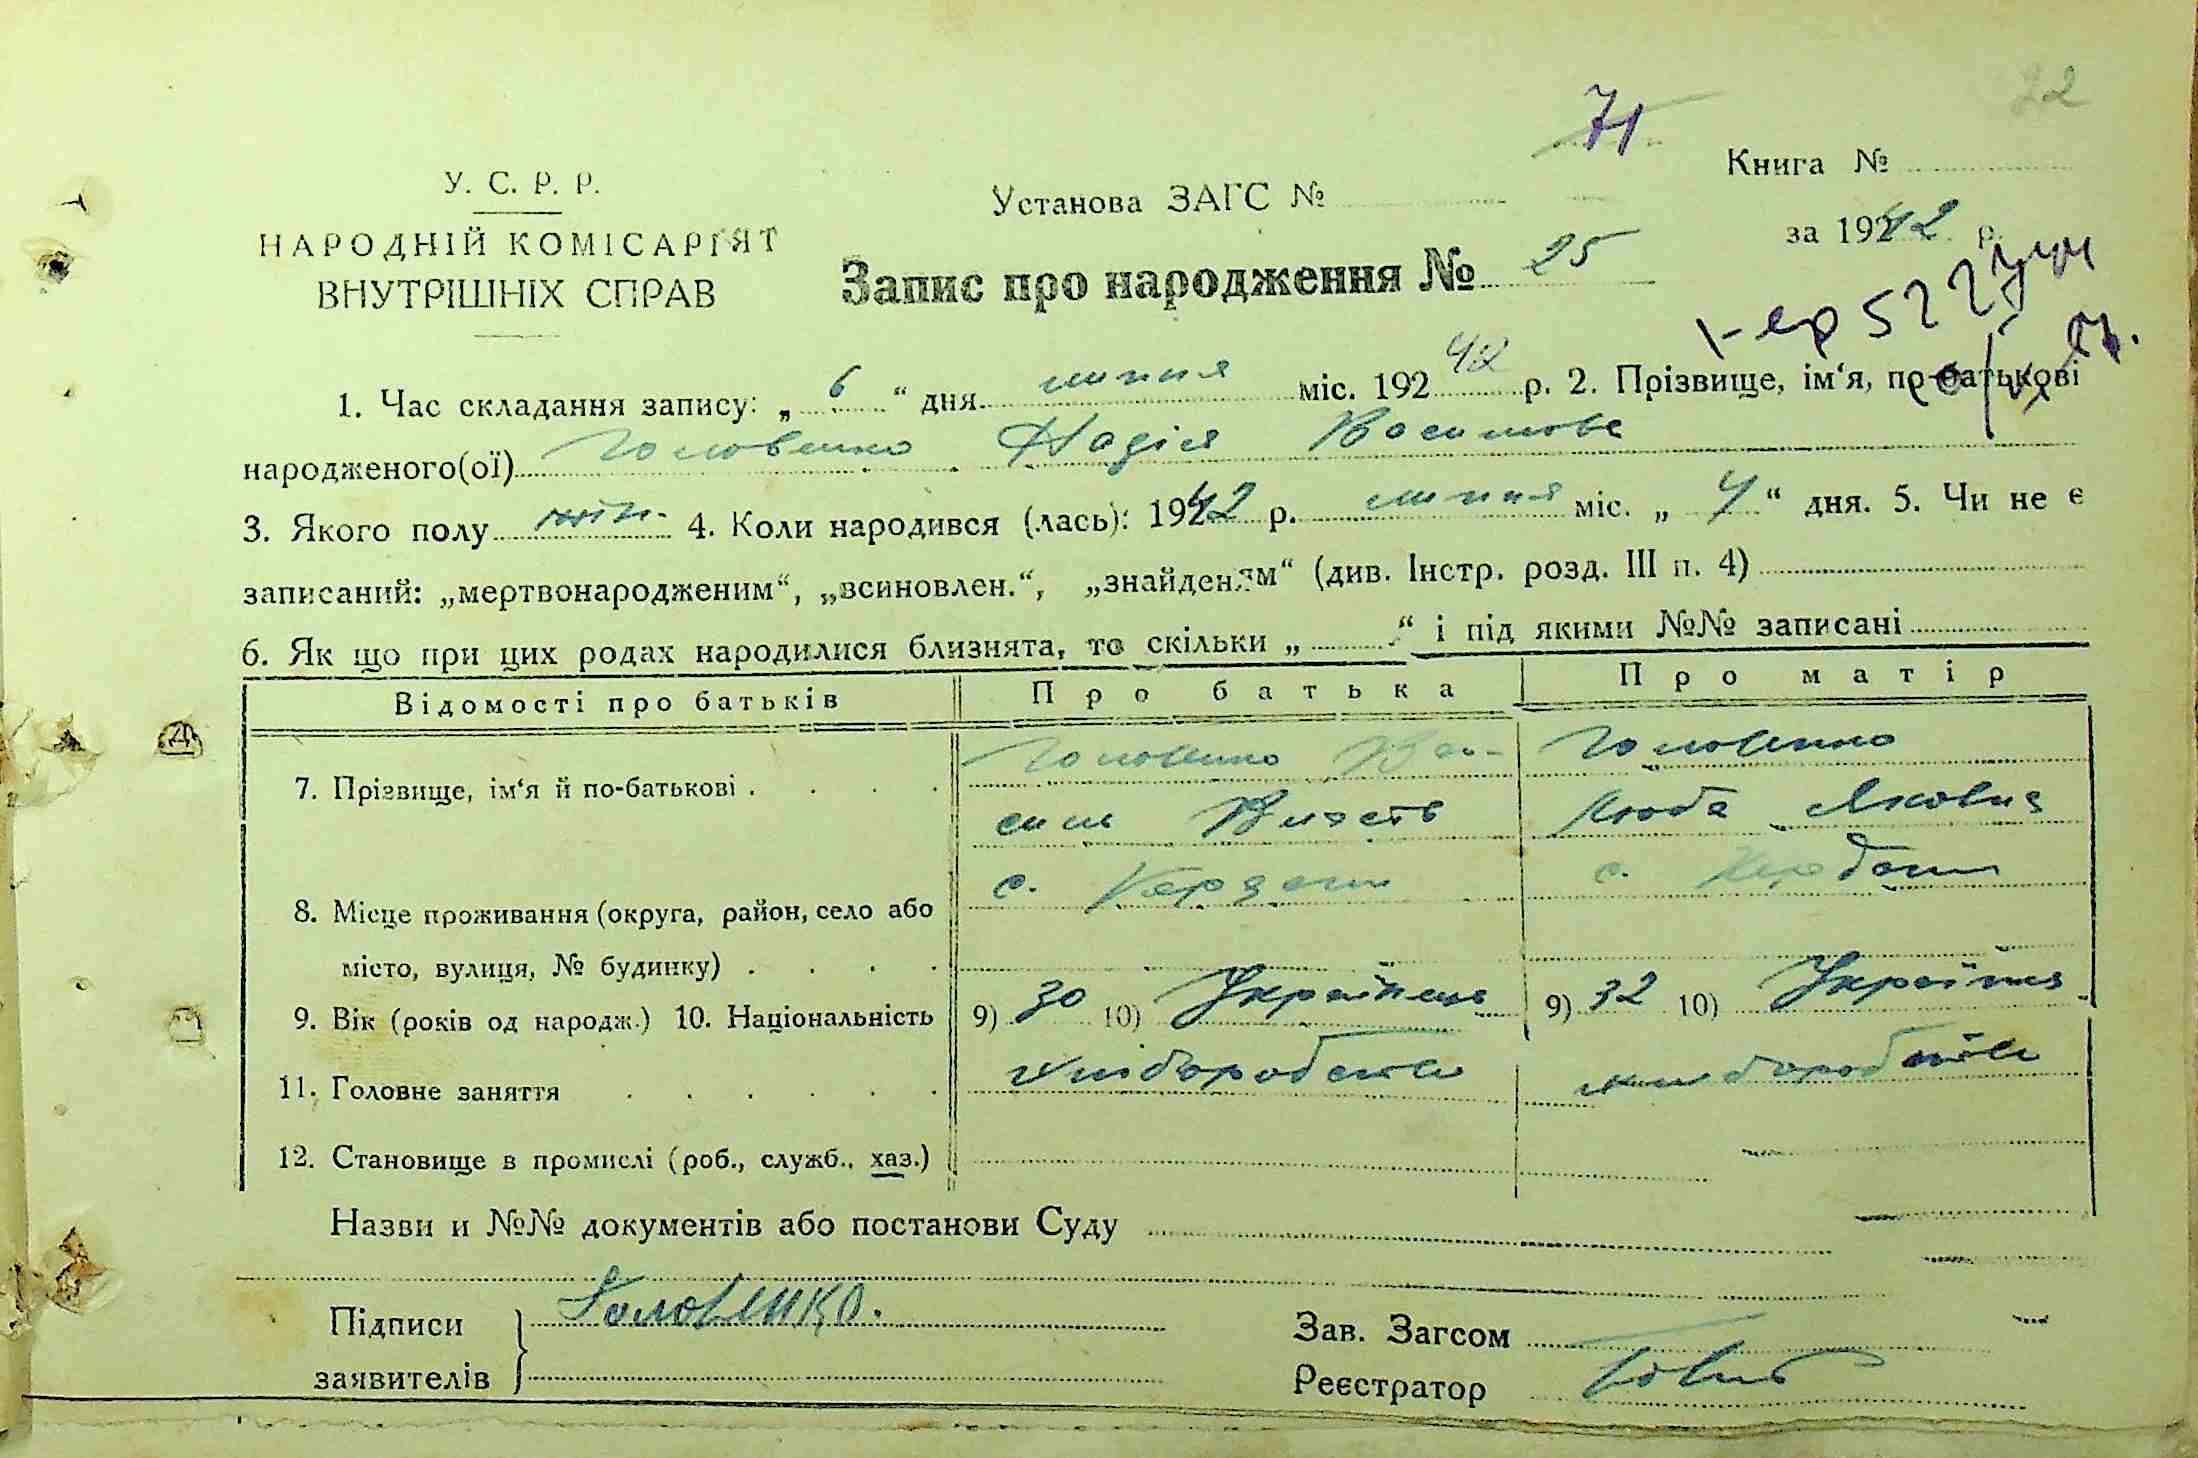 22
71
У. С. Р. Р.
НАРОДНІЙ КОМІСАРІЯТ
ВНУТРІШНІХ СПРАВ
Установа ЗАГС №
Книга №
за 1942 р.
Запис про народження № 25
1. Час складання запису: „ 6 “ дня липня міс. 192 42 р. 2. Прізвище, ім‘я, по-батькові
народженого(ої) Головенко Надія Василівна
3. Якого полу жін. 4. Коли народився (лась): 1942 р. липня міс. „ 4 “ дня. 5. Чи не є
записаний: „мертвонародженим“, „всиновлен.“, „знайденям“ (див. Інстр. розд. III п. 4)
6. Як що при цих родах народилися близнята, то скільки „ “ і під якими №№ записані
Відомості про батьків Про батька Про матір
7. Прізвище, ім‘я й по-батькові Головенко Ва- Головенко
силь Люба Яковна
с. с.
8. Місце проживання (округа, район, село або
місто, вулиця, № будинку)
9. Вік (років од народж.) 10. Національність 9) 30 10) Українець 9) 32 10) Українка
11. Головне заняття хліборобство хліборобство
12. Становище в промислі (роб., служб., хаз.)
Назви и №№ документів або постанови Суду
Підписи Головенко.
заявителів
Зав. Загсом
Реєстратор